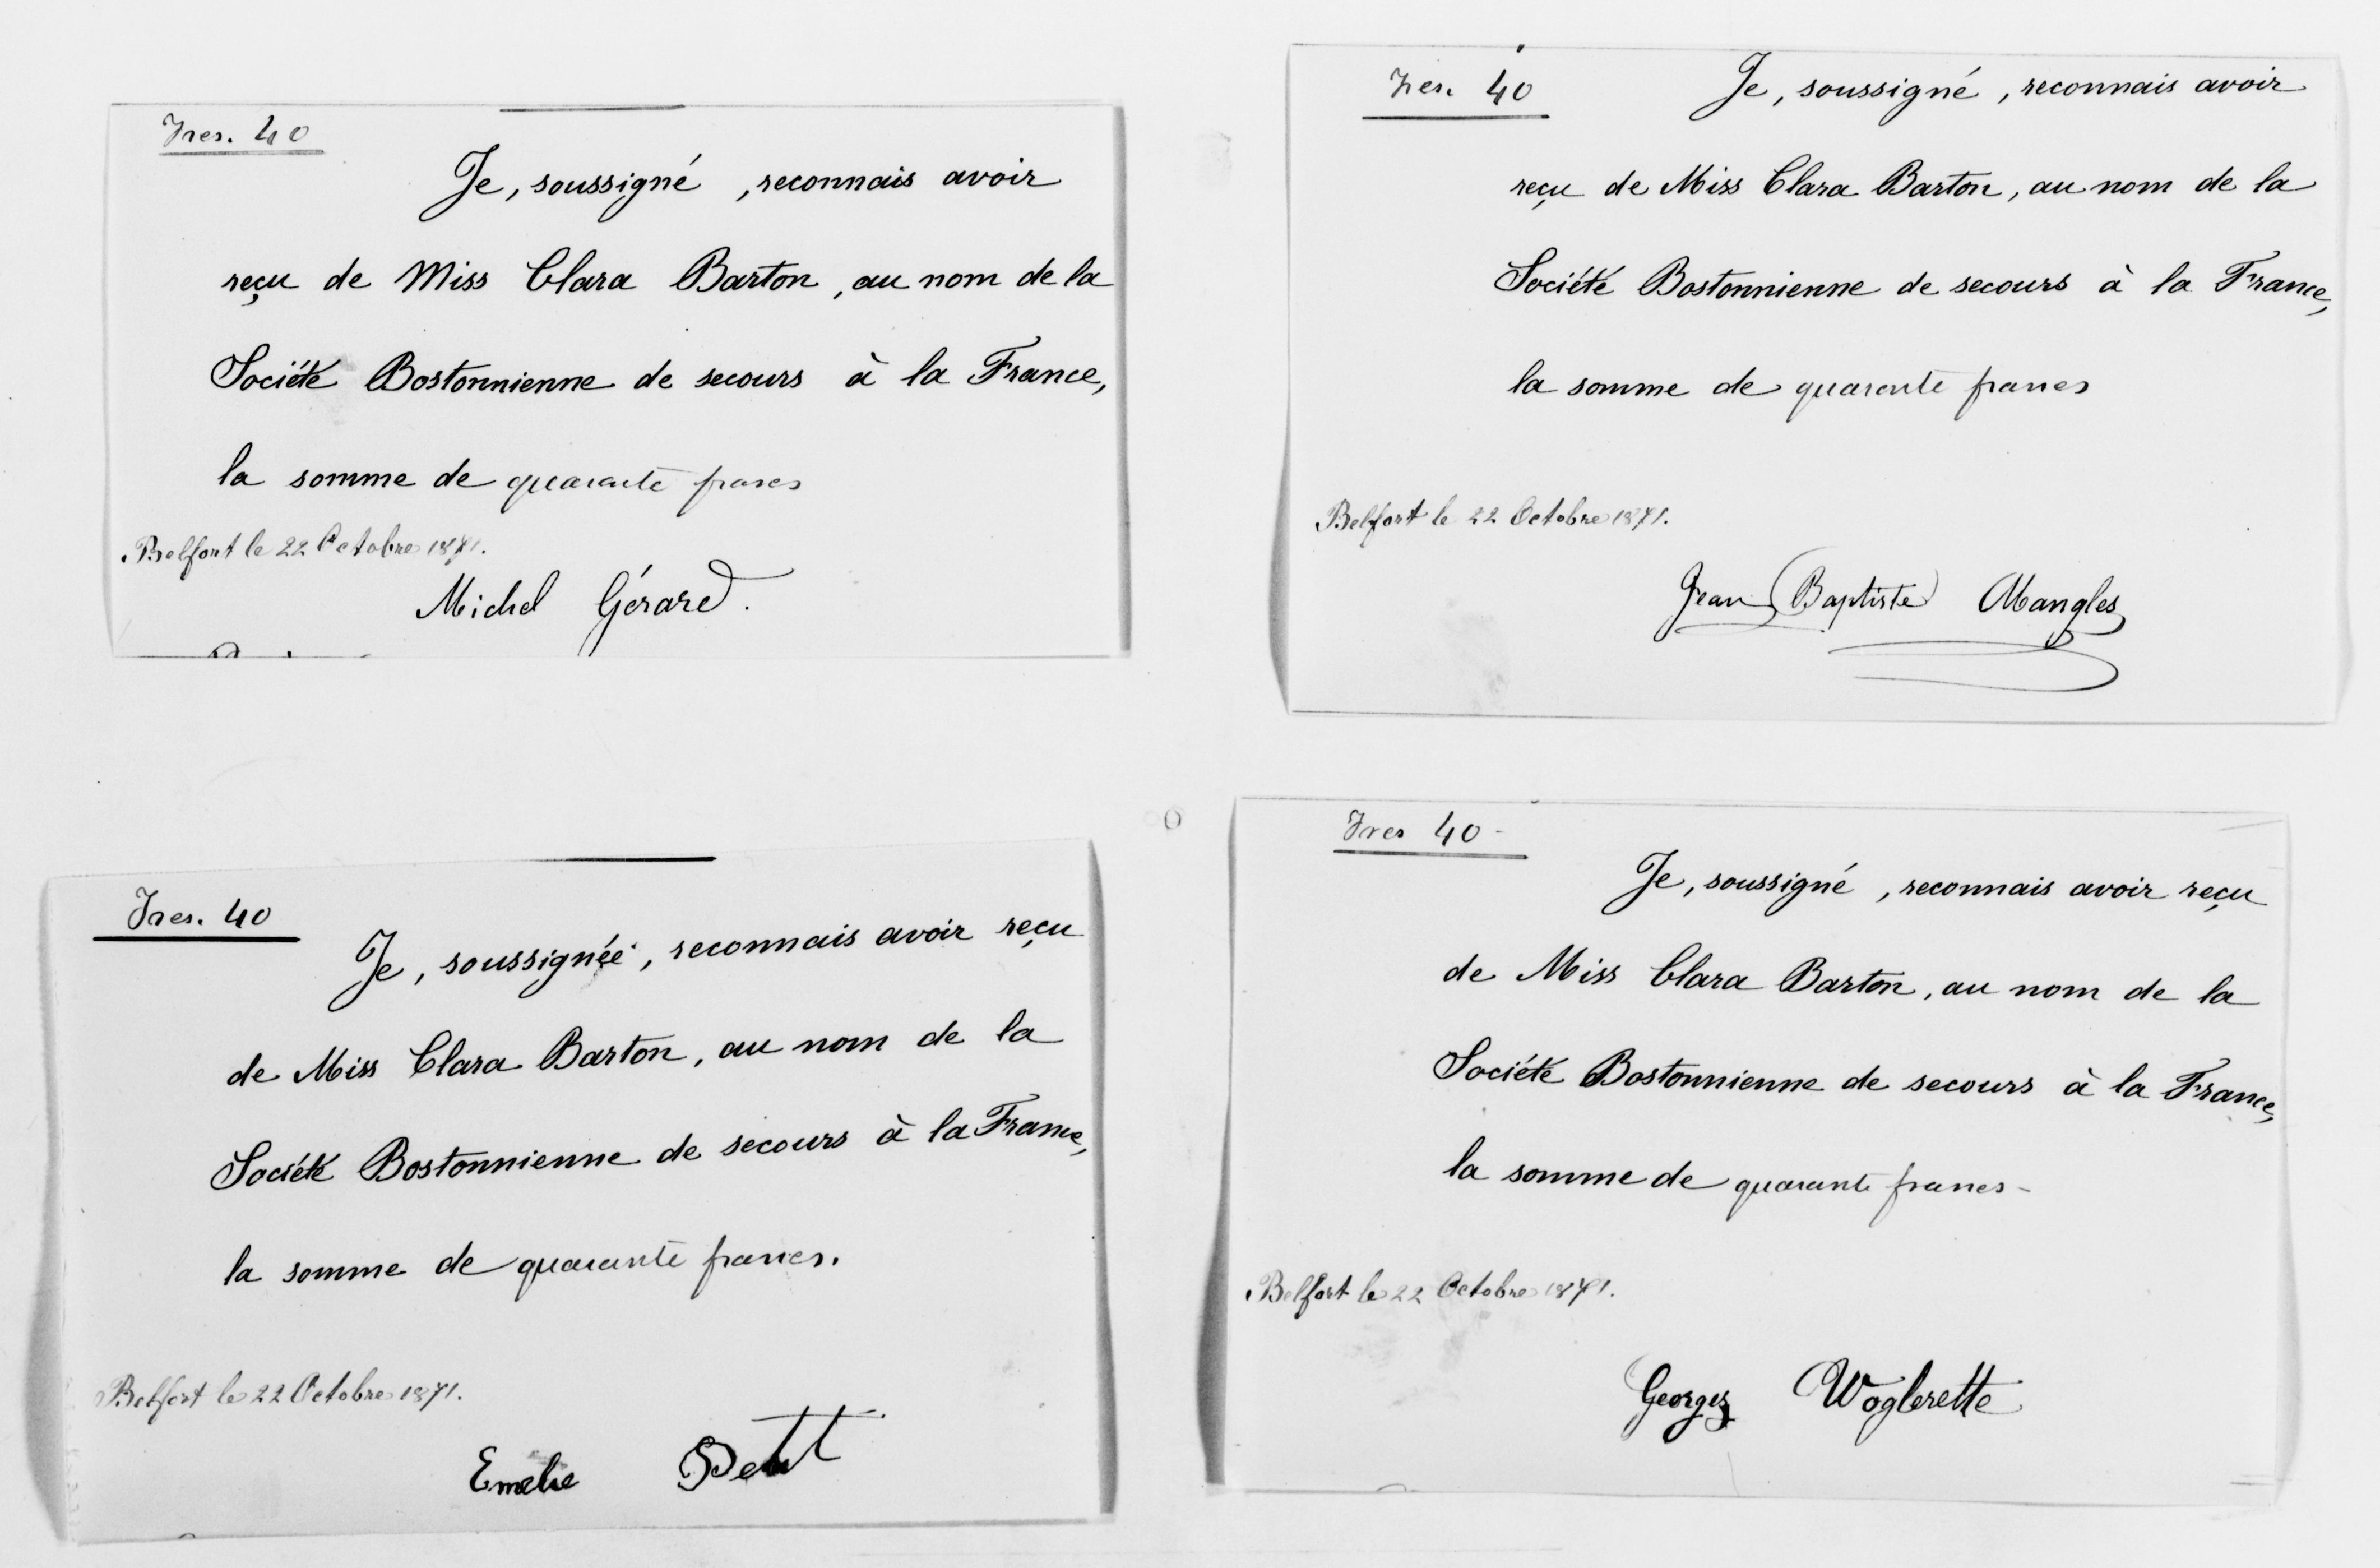 Frcs. 40
Je, soussigné, reconnais avoir
reçu de Miss Clara Barton, au nom de la
Société Bostonnienne de secours à la France,
la somme de quarante francs
Belfort le 22 Octobre 1871.
Michel Gérard.
Frcs. 40
Je, soussigné, reconnais avoir
reçu de Miss Clara Barton, au nom de la
Société Bostonnienne de secours à la France,
la somme de quarante francs
Belfort le 22 Octobre 1871.
Jean Baptiste Mangles
Frcs. 40
Je, soussignée, reconnais avoir reçu
de Miss Clara Barton, au nom de la
Société Bostonnienne de secours à la France,
la somme de quarante francs.
Belfort le 22 Octobre 1871.
Emelie Petit
Frcs 40-
Je, soussigné, reconnais avoir reçu
de Miss Clara Barton, au nom de la
Société Bostonnienne de secours à la France,
la somme de quarante francs-
Belfort le 22 Octobre 1871.
Georges Woglerette